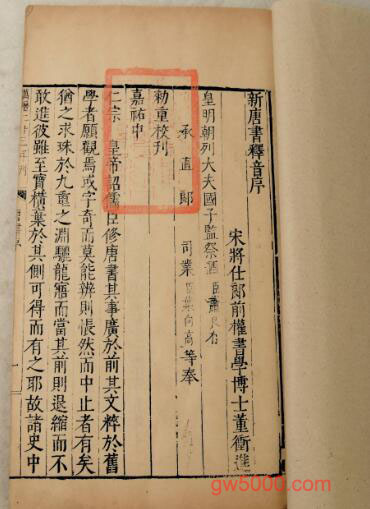 新唐書釋音序
宋將仕郎前權書學博士董衝進
皇明朝列大夫國子監祭酒臣蕭良有
承直郎 司業臣葉向高等奉
勑重校刊
嘉祐中
仁宗 皇帝詔儒臣修唐書其事廣於前其文粹於舊
學者願觀焉或字奇而莫能辨則悵然而中止者有矣
猶之求珠於九重之淵驪龍寤而當其前則退縮而不
敢進彼雖至寶橫棄於其側可得而有之耶故諸史中
唐書序
一
gw5000.com